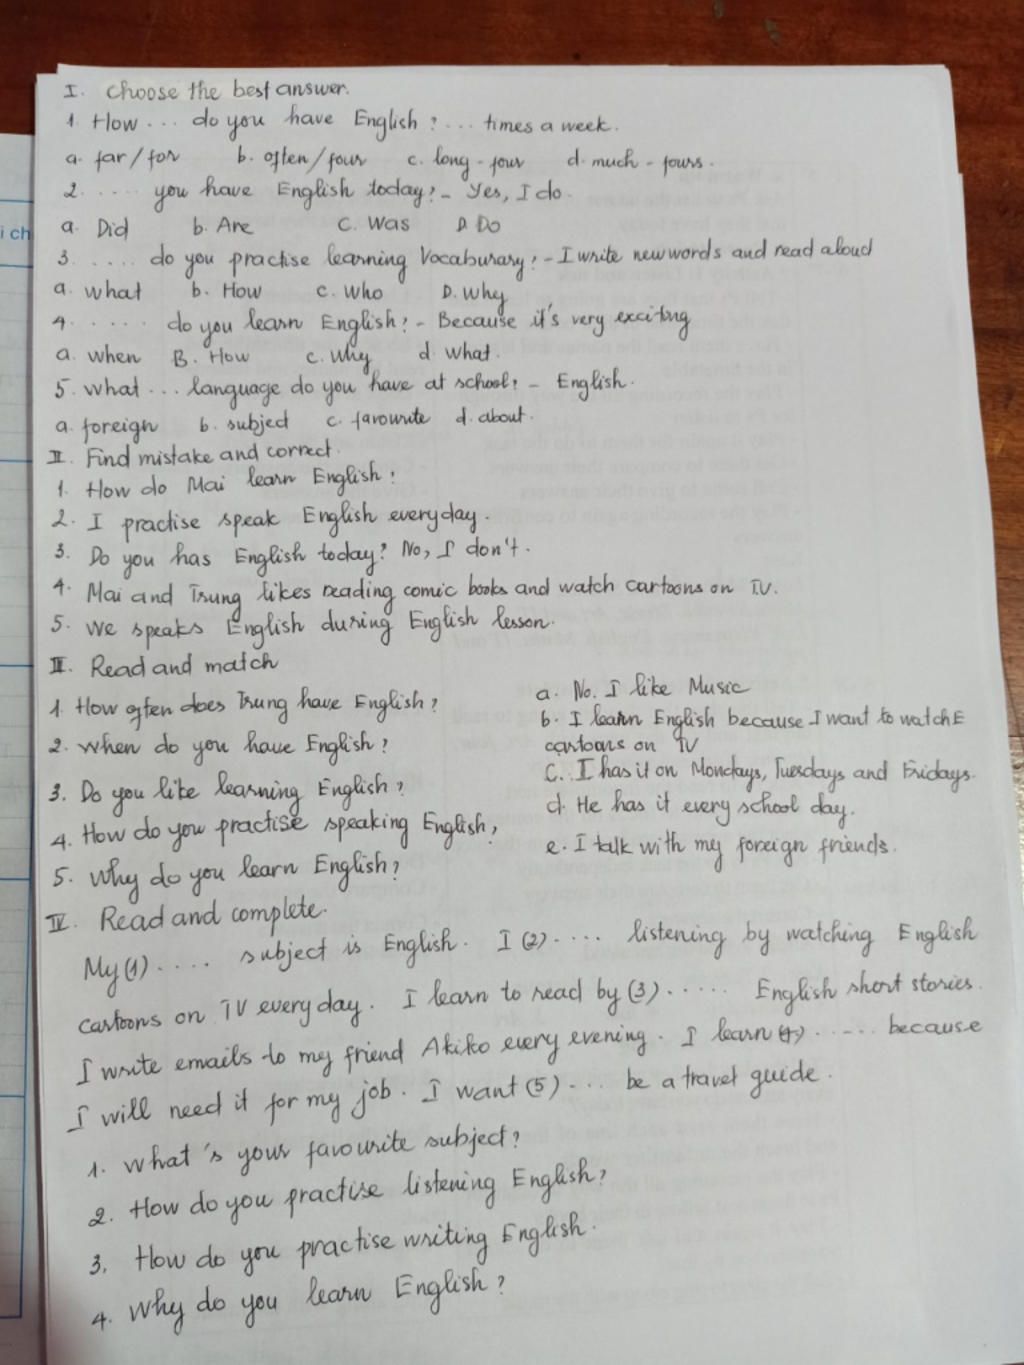 I. Choose the best answer.
1. How ... do you have English? ... times a week.
a. far/for b. often/four c. long - four d. much - fours.
2. ..... you have English today? - Yes, I do.
a. Did b. Are C. Was D. Do
3. ..... do you practise learning Vocaburary? - I write new words and read aloud
a. what b. How c. Who D. Why
4. ..... do you learn English? - Because it's very exciting
a. when B. How c. Why d. what.
5. what ... language do you have at school? - English.
a. foreign b. subject c. favourite d. about.
II. Find mistake and correct.
1. How do Mai learn English?
2. I practise speak English everyday.
3. Do you has English today? No, I don't.
4. Mai and Trung likes reading comic books and watch cartoons on T.V.
5. We speaks English during English lesson.
III. Read and match
1. How often does Trung have English?
2. When do you have English?
3. Do you like learning English?
4. How do you practise speaking English?
5. Why do you learn English?
a. No. I like Music
b. I learn English because I want to watch E
cartoons on TV
C. I has it on Mondays, Tuesdays and Fridays.
d. He has it every school day.
e. I talk with my foreign friends.
IV. Read and complete.
My (1) .... subject is English. I (2) .... listening by watching English
cartoons on TV everyday. I learn to read by (3) ..... English short stories.
I write emails to my friend Akiko every evening. I learn (4) ..... because
I will need it for my job. I want (5) ... be a travel guide.
1. What's your favourite subject?
2. How do you practise listening English?
3. How do you practise writing English.
4. Why do you learn English?